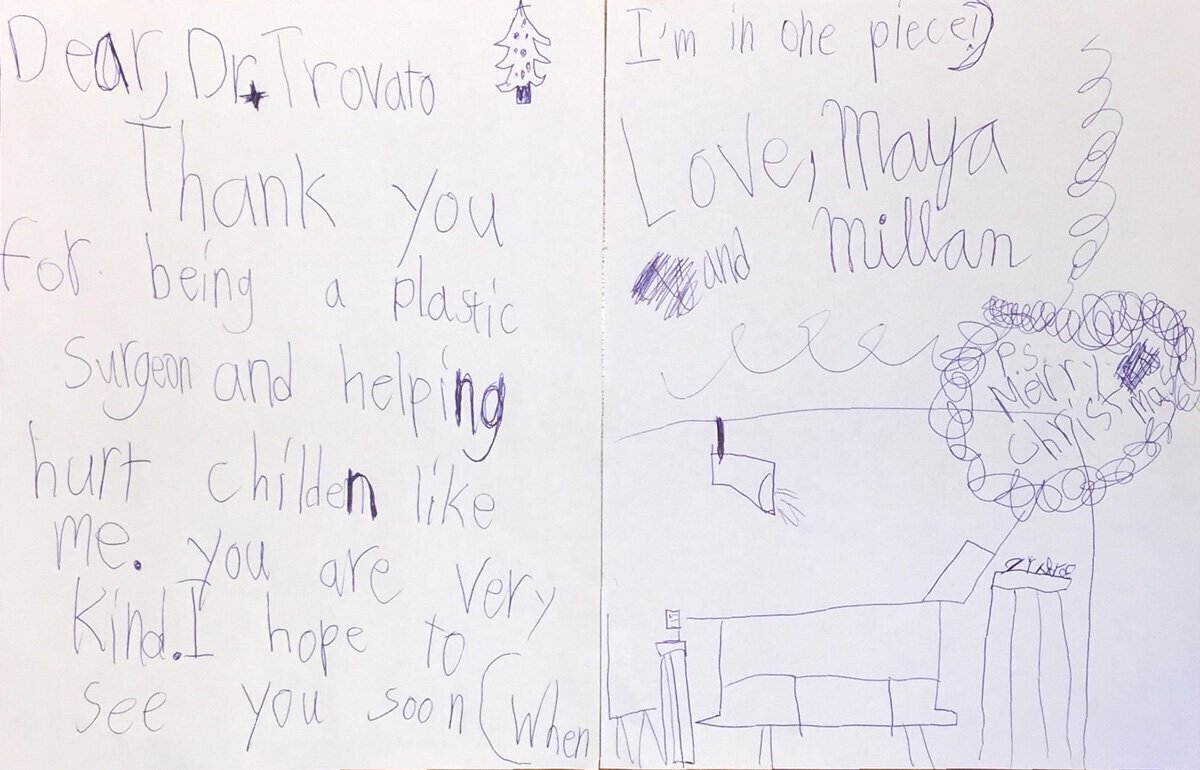 Dear, Dr. Trovato
Thank you
for being a plastic
surgeon and helping
hurt childen like
me. you are very
Kind. I hope to
see you soon (When
I'm in one piece!)
Love, Maya
and Millan
P.S.
Merry
Christ mas